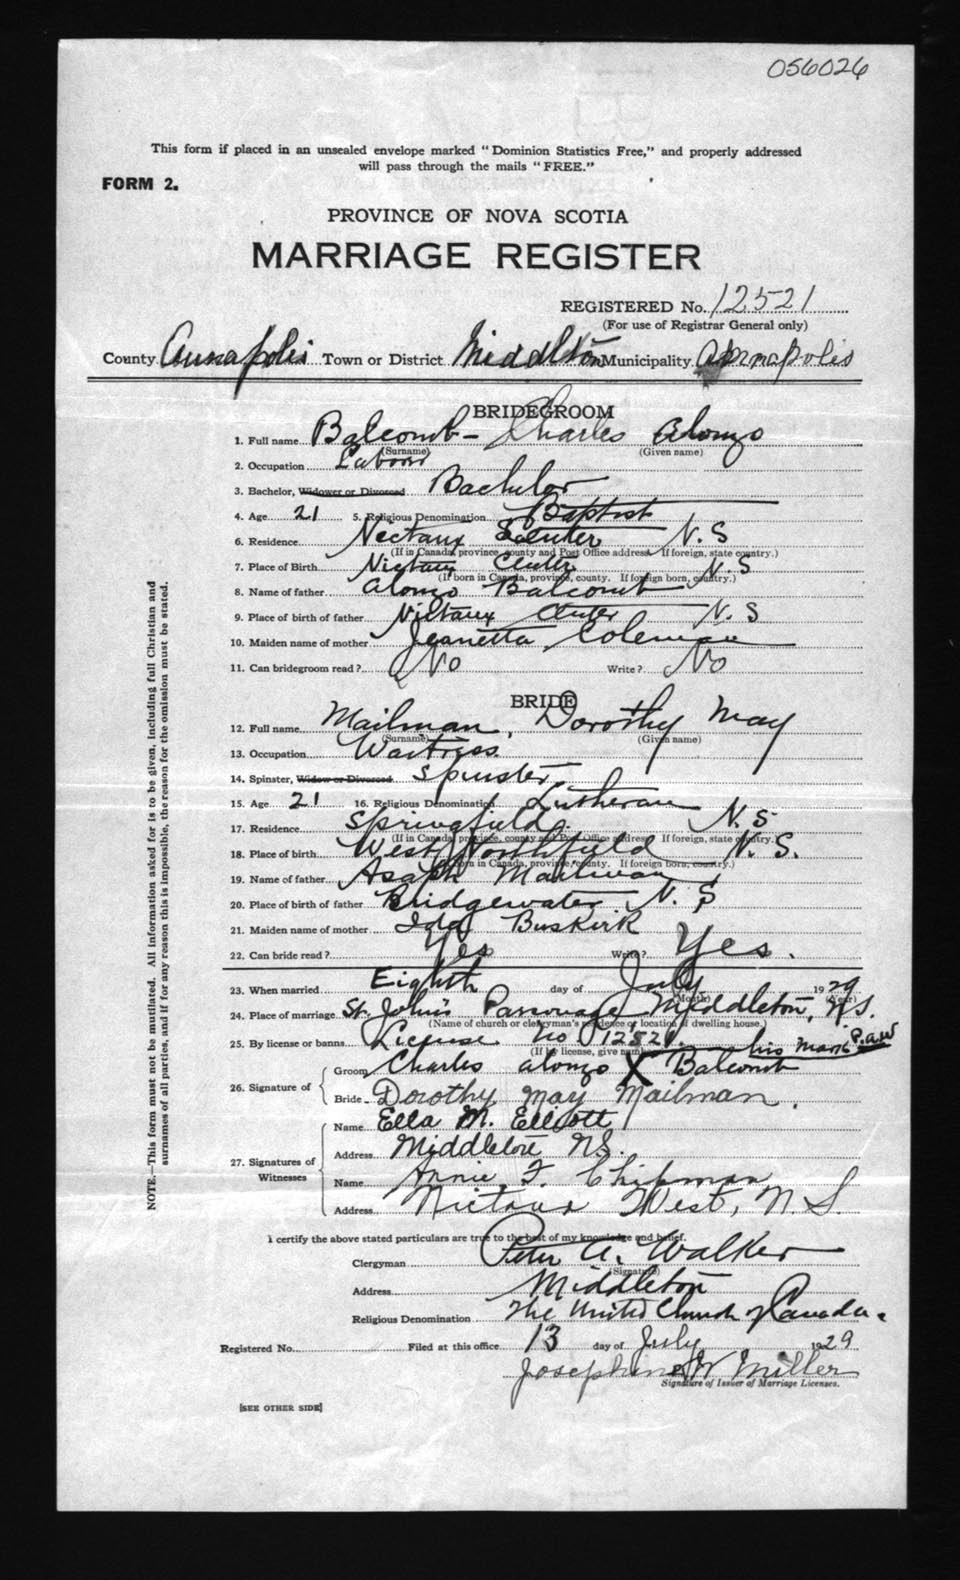 056026
This form if placed in an unsealed envelope marked "Dominion Statistics Free," and properly addressed
will pass through the mails "FREE."
FORM 2.
PROVINCE OF NOVA SCOTIA
MARRIAGE REGISTER
REGISTERED No. 12521
(For use of Registrar General only)
County Annapolis Town or District Middleton Municipality Annapolis
BRIDEGROOM
1. Full name Balcomb - Charles Alonzo
(Surname) (Given name)
2. Occupation Labour
3. Bachelor, Widower or Divorced Bachelor
4. Age 21 5. Religious Denomination Baptist
6. Residence Nectaux Center N.S
(If in Canada, province, county and Post Office address. If foreign, state country.)
7. Place of Birth Nictaux Center N.S
(If born in Canada, province, county. If foreign born, country.)
8. Name of father Alonzo Balcomb
9. Place of birth of father Nictaux Center N.S
10. Maiden name of mother Jeanetta Coleman
11. Can bridegroom read? No Write? No
BRIDE
12. Full name Mailman, Dorothy May
(Surname) (Given name)
13. Occupation Waitress.
14. Spinster, Widow or Divorced Spinster
15. Age 21 16. Religious Denomination Lutheran
17. Residence Springfield N.S
(If in Canada, province, county and Post Office address. If foreign, state country.)
18. Place of birth West Northfield N.S.
(If born in Canada, province, county. If foreign born, country.)
19. Name of father Asaph Mailman
20. Place of birth of father Bridgewater N.S
21. Maiden name of mother Ida Buskirk
22. Can bride read? Yes Write? Yes.
23. When married Eighth day of July 1929
(Month) (Year)
24. Place of marriage St. John's Parsonage Middleton, N.S.
(Name of church or clergyman's residence or location of dwelling house.)
25. By license or banns License no 12521.
(If by license, give number)
his mark P.A.W
26. Signature of Groom Charles Alonzo X Balcomb
Bride Dorothy May Mailman.
27. Signatures of Witnesses
Name Ella M. Elliott
Address Middleton N.S.
Name Annie F. Chipman
Address Nictaux West, N.S.
I certify the above stated particulars are true to the best of my knowledge and belief.
Clergyman Peter A. Walker
(Signature)
Address Middleton
Religious Denomination The United Church of Canada.
Registered No. Filed at this office 13 day of July 1929
Josephine W Miller
Signature of Issuer of Marriage Licenses.
[SEE OTHER SIDE]
NOTE.—This form must not be mutilated. All information asked for is to be given, including full Christian and
surnames of all parties, and if for any reason this is impossible, the reason for the omission must be stated.